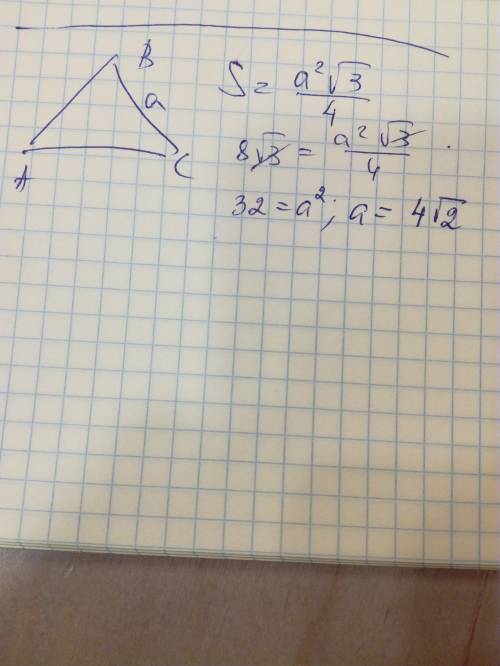 B
a
A
C
S = a²√3/4
8√3 = a²√3/4
32 = a²; a = 4√2